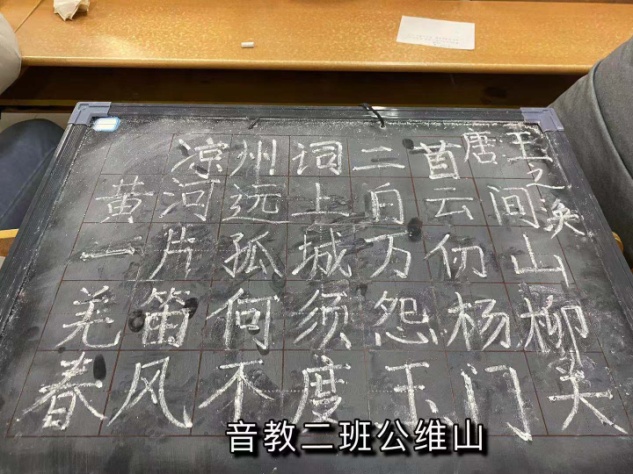 凉州词二首唐王之涣
黄河远上白云间
一片孤城万仞山
羌笛何须怨杨柳
春风不度玉门关
音教二班公维山